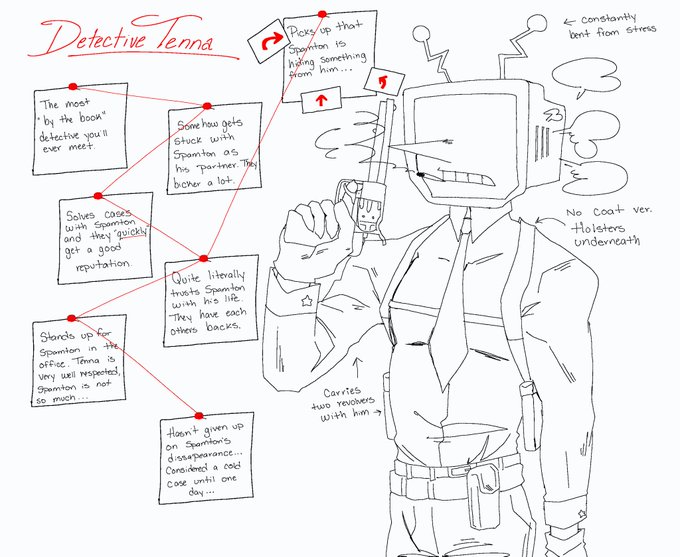 Detective Tenna
The most
"by the book"
detective you'll
ever meet.
Somehow gets
stuck with
Spamton as
his partner. They
bicker a lot.
Solves cases
with Spamton
and they "quickly"
get a good
reputation.
Quite literally
trusts Spamton
with his life.
They have each
others backs.
Picks up that
Spamton is
hiding something
from him...
Stands up for
Spamton in the
office. Tenna is
very well respected,
Spamton is not
so much...
Hasn't given up
on Spamton's
dissapearance...
Considered a cold
case until one
day...
← constantly
bent from stress
No coat ver.
Holsters
underneath
Carries
two revolvers
with him →